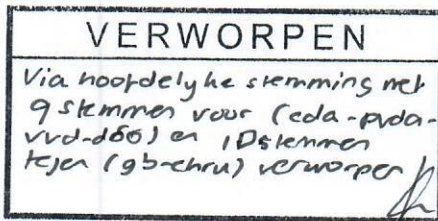 VERWORPEN
Via hoofdelyke stemming met
9 stemmen voor (cda-pvda-
vvd-d66) en 10 stemmen
tegen (gb-chru) verworpen